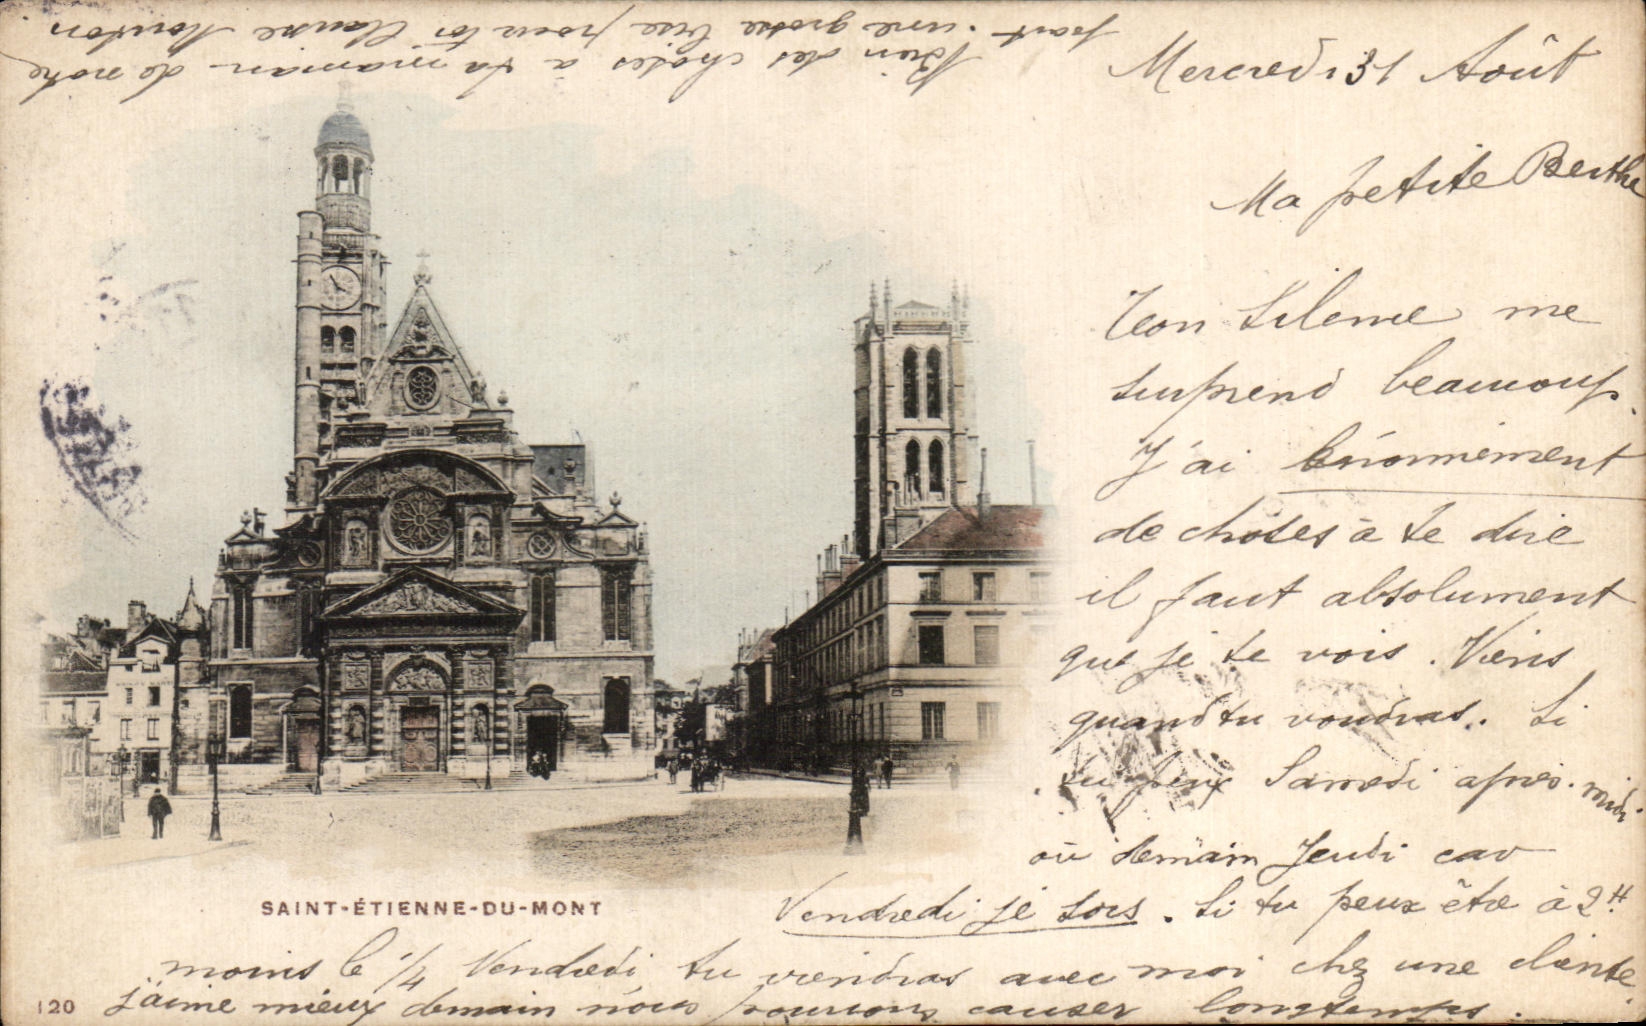 Mercredi 31 Août
Ma petite Berthe
Ton silence me
surprend beaucoup.
J'ai énormément
de choses à te dire
il faut absolument
que je te vois. Viens
quand tu voudras. Si
tu peux Samedi après-midi
ou demain Jeudi car
Vendredi je sors. Si tu peux être à 2H
moins le 1/4 Vendredi tu viendras avec moi chez une cliente
j'aime mieux demain nous pourrons causer longtemps.
Bien des choses à ta maman de notre
part. une grosse bise pour toi
SAINT-ÉTIENNE-DU-MONT
120